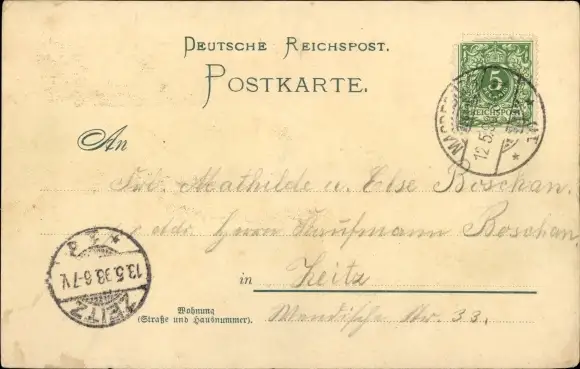 DEUTSCHE REICHSPOST.
POSTKARTE.
5
REICHSPOST
MAGDEB
12.5.
An
Frl. Mathilde u. Else Boschan.
Adr. Herrn Kaufmann Boschan,
13.5.98.6-7V.
ZEITZ
in Zeitz
Wohnung
(Straße und Hausnummer).
Wendische Str. 33.